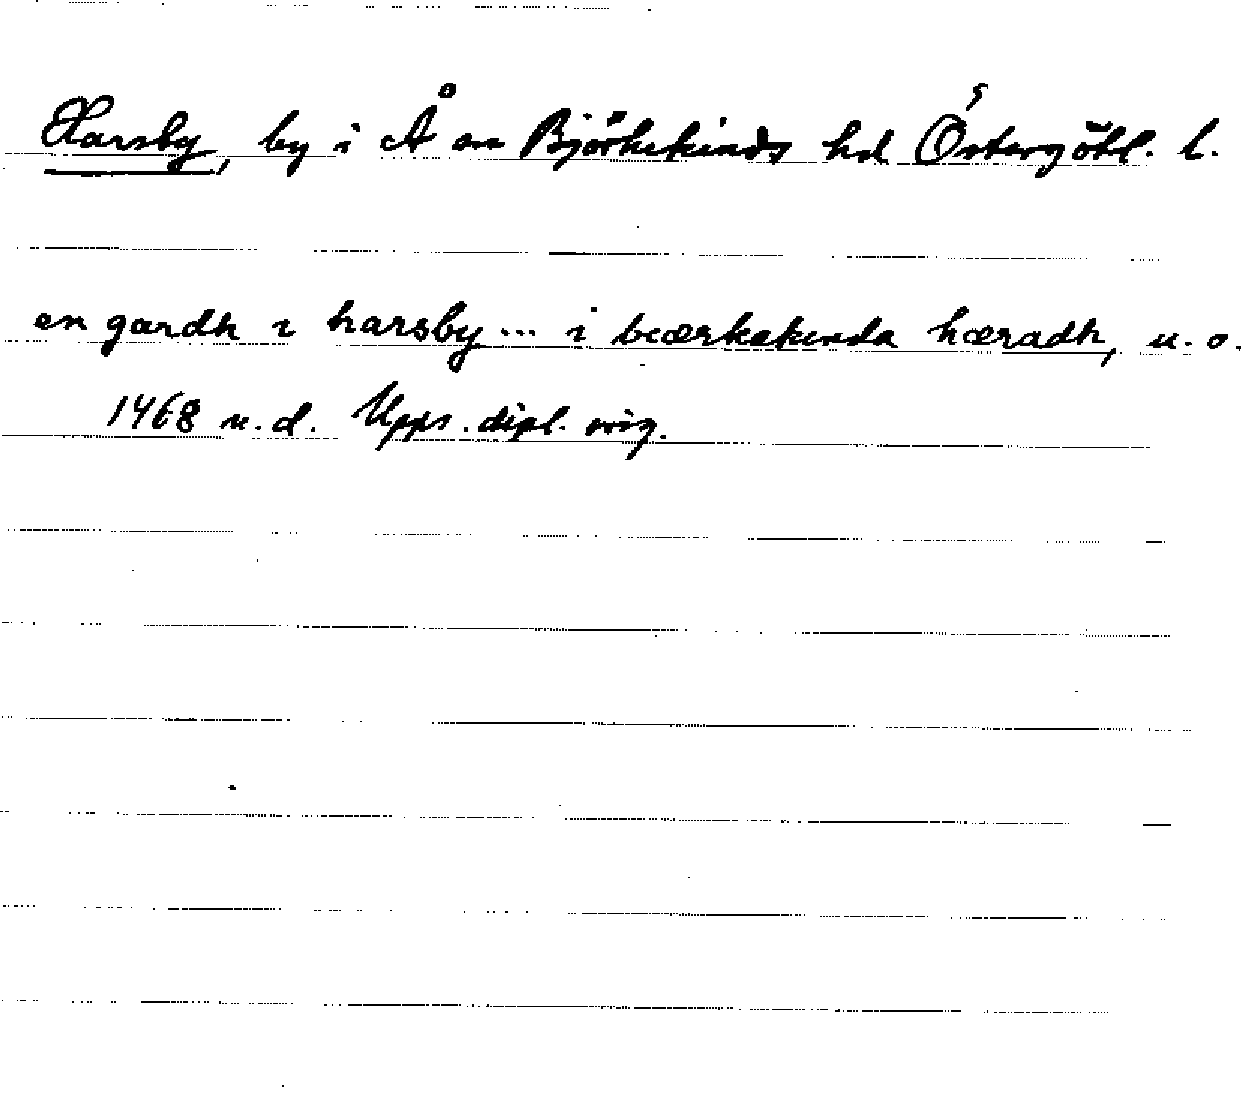 Harsby, by i Å sn Björkekinds hd Östergötl. l.
en gardh i harsby... i biærkekinda hæradh, u. o.
1468 u. d. Upps. dipl. orig.